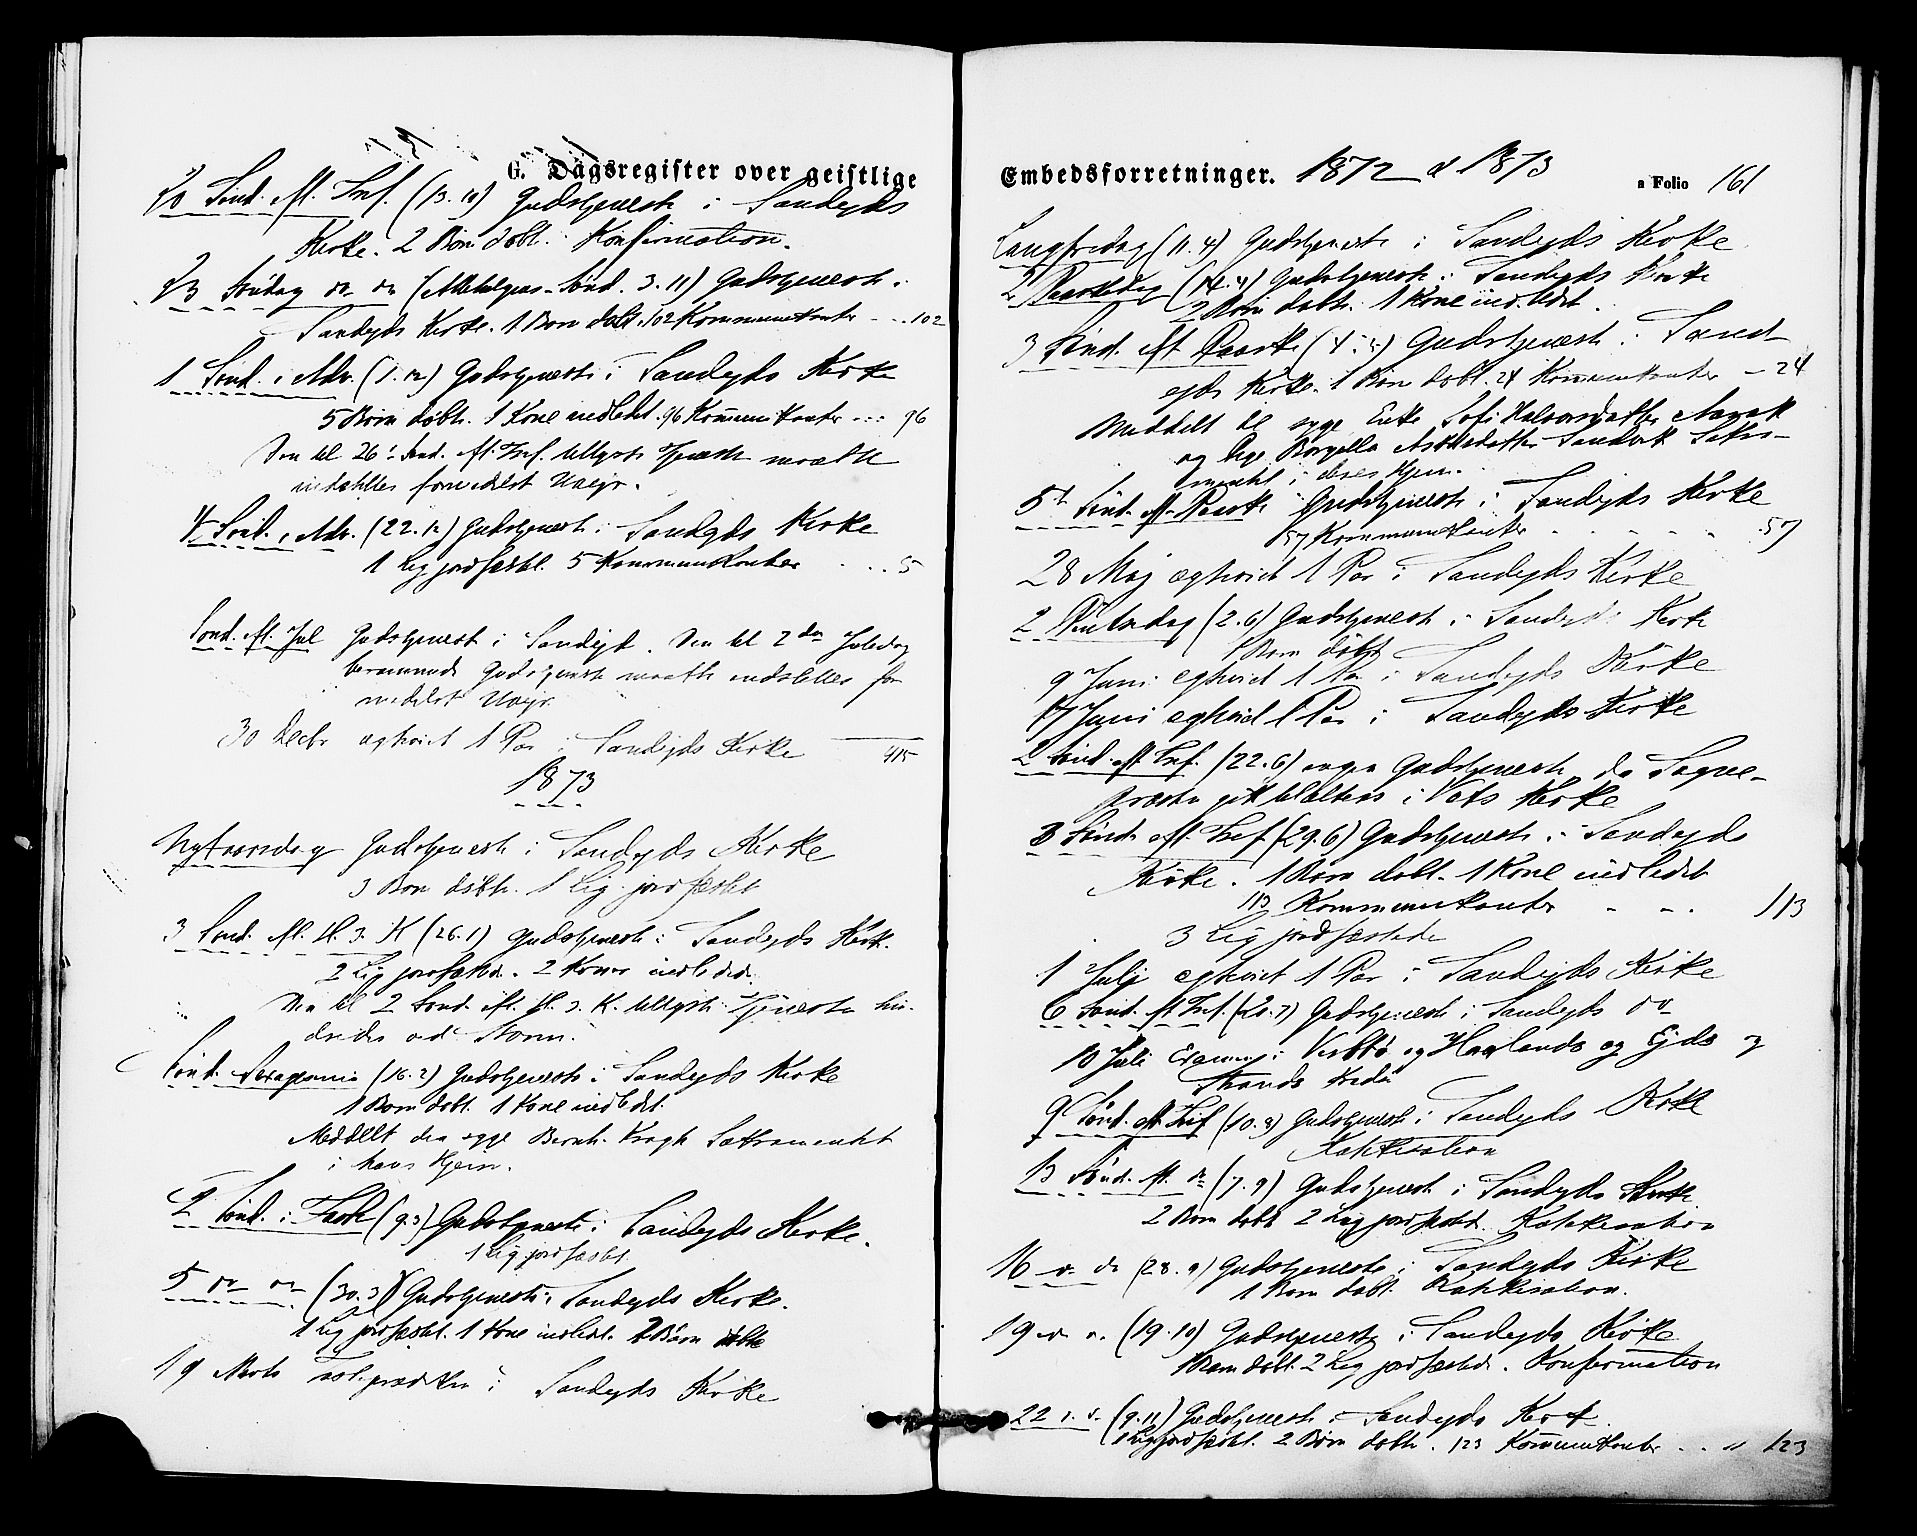 G. Dagsregister over geistlige
20 Sönd. Aft. Tref. (13.10) Gudstjeneste i Sandejds
Kirke. 2 Börn döbt. Konfirmation.
23 Söndag do do (Allehelgens-Sönd. 3.11) Gudstjeneste i
Sandejds Kirke. 1 Barn döbt. 102 Kommunikanter - - - 102
1 Sönd. i Adv. (1.12) Gudstjeneste i Sandejds Kirke
5 Börn döbte. 1 Kone indledet. 96 Kommunikanter - - - 96
Den til 26de Sönd. Aft. Tref. tillyste Tjeneste maatte
indstilles formedelst Uveir.
4 Sönd. i Adv. (22.12) Gudstjeneste i Sandejds Kirke
1 Lig jordfæstet. 5 Kommunikanter - - - 5
Sönd. Aft. Jul Gudstjeneste i Sandejd. Den til 2den Juledag
berammede Gudstjeneste maatte indstilles for
medelst Uveir.
30 Decbr ægteviet 1 Par i Sandejds Kirke 415
1873
Nytaarsdag Gudstjeneste i Sandejds Kirke
3 Börn döbte. 1 Lig jordfæstet
3 Sönd. Aft. H. 3. K (26.1) Gudstjeneste i Sandejds Kirke.
2 Lig jordfæstede. 2 Koner indledede.
Den til 2 Sönd. Aft. H. 3. K. tillyste Tjeneste hin-
dredes ved Storm.
Sönd. Sexagesima (16.2) Gudstjeneste i Sandejds Kirke
1 Barn döbt. 1 Kone indledet.
Meddelt den syge Bernh. Krogh Sakramentet
i hans Hjem.
2 Sönd. i Faste (9.3) Gudstjeneste i Sandejds Kirke.
1 Lig jordfæstet.
5 do do (30.3) Gudstjeneste i Sandejds Kirke.
1 Lig jordfæstet. 1 Kone indledet. 2 Börn döbte
19 Marts i Sandejds Kirke
Embedsforretninger. 1872 & 1873 a Folio 161
Langfredag (11.4) Gudstjeneste i Sandejds Kirke
2 Paaskedag (14.4) Gudstjeneste i Sandejds Kirke
2 Börn döbte. 1 Kone indledet.
3 Sönd. Aft Paaske (4.5) Gudstjeneste i Sand-
ejds Kirke. 1 Barn döbt. 24 Kommunikanter - 24
Meddelt de syge Enke Sofi Halvorsdatter
og Pige Aslaksdatter Sandvik Sakra-
mentet i deres Hjem.
5te Sönd. Aft. Paaske Gudstjeneste i Sandejds Kirke
57 Kommunikanter - - - - - 57
28 Maj ægteviet 1 Par i Sandejds Kirke
2 Pintsedag (2.6) Gudstjeneste i Sandejds Kirke
1 Barn döbt
9 Juni ægteviet 1 Par i Sandejds Kirke
17 Juni ægteviet 1 Par i Sandejds Kirke
2 Sönd. Aft. Tref. (22.6) ingen Gudstjeneste da Sogne-
præsten gik til Alters i Vats Kirke
3 Sönd. Aft. Tref (29.6) Gudstjeneste i Sandejds
Kirke. 1 Barn döbt. 1 Kone indledet
113 Kommunikanter - - - 113
3 Lig jordfæstede
1 Juli ægteviet 1 Par i Sandejds Kirke
6 Sönd. Aft Tref. (20.7) Gudstjeneste i Sandejds do
Juli Examen i Vestbö og Havlands og Ejds og
Strands Kreds
9 Sönd. Aft Tref (10.8) Gudstjeneste i Sandejds Kirke
Katekisation
13 Sönd. Aft. do (7.9) Gudstjeneste i Sandejds Kirke
2 Börn döbte 2 Lig jordfæstet. Katekisation
16 do do (28.9) Gudstjeneste i Sandejds Kirke
1 Barn döbt. Katekisation.
19 do do (19.10) Gudstjeneste i Sandejds Kirke
1 Barn döbt. 2 Lig jordfæstede. Konfirmation
22 do do (9.11) Gudstjeneste i Sandejds Kirke.
1 Lig jordfæstet. 2 Börn döbte. 123 Kommunikanter - - - 123